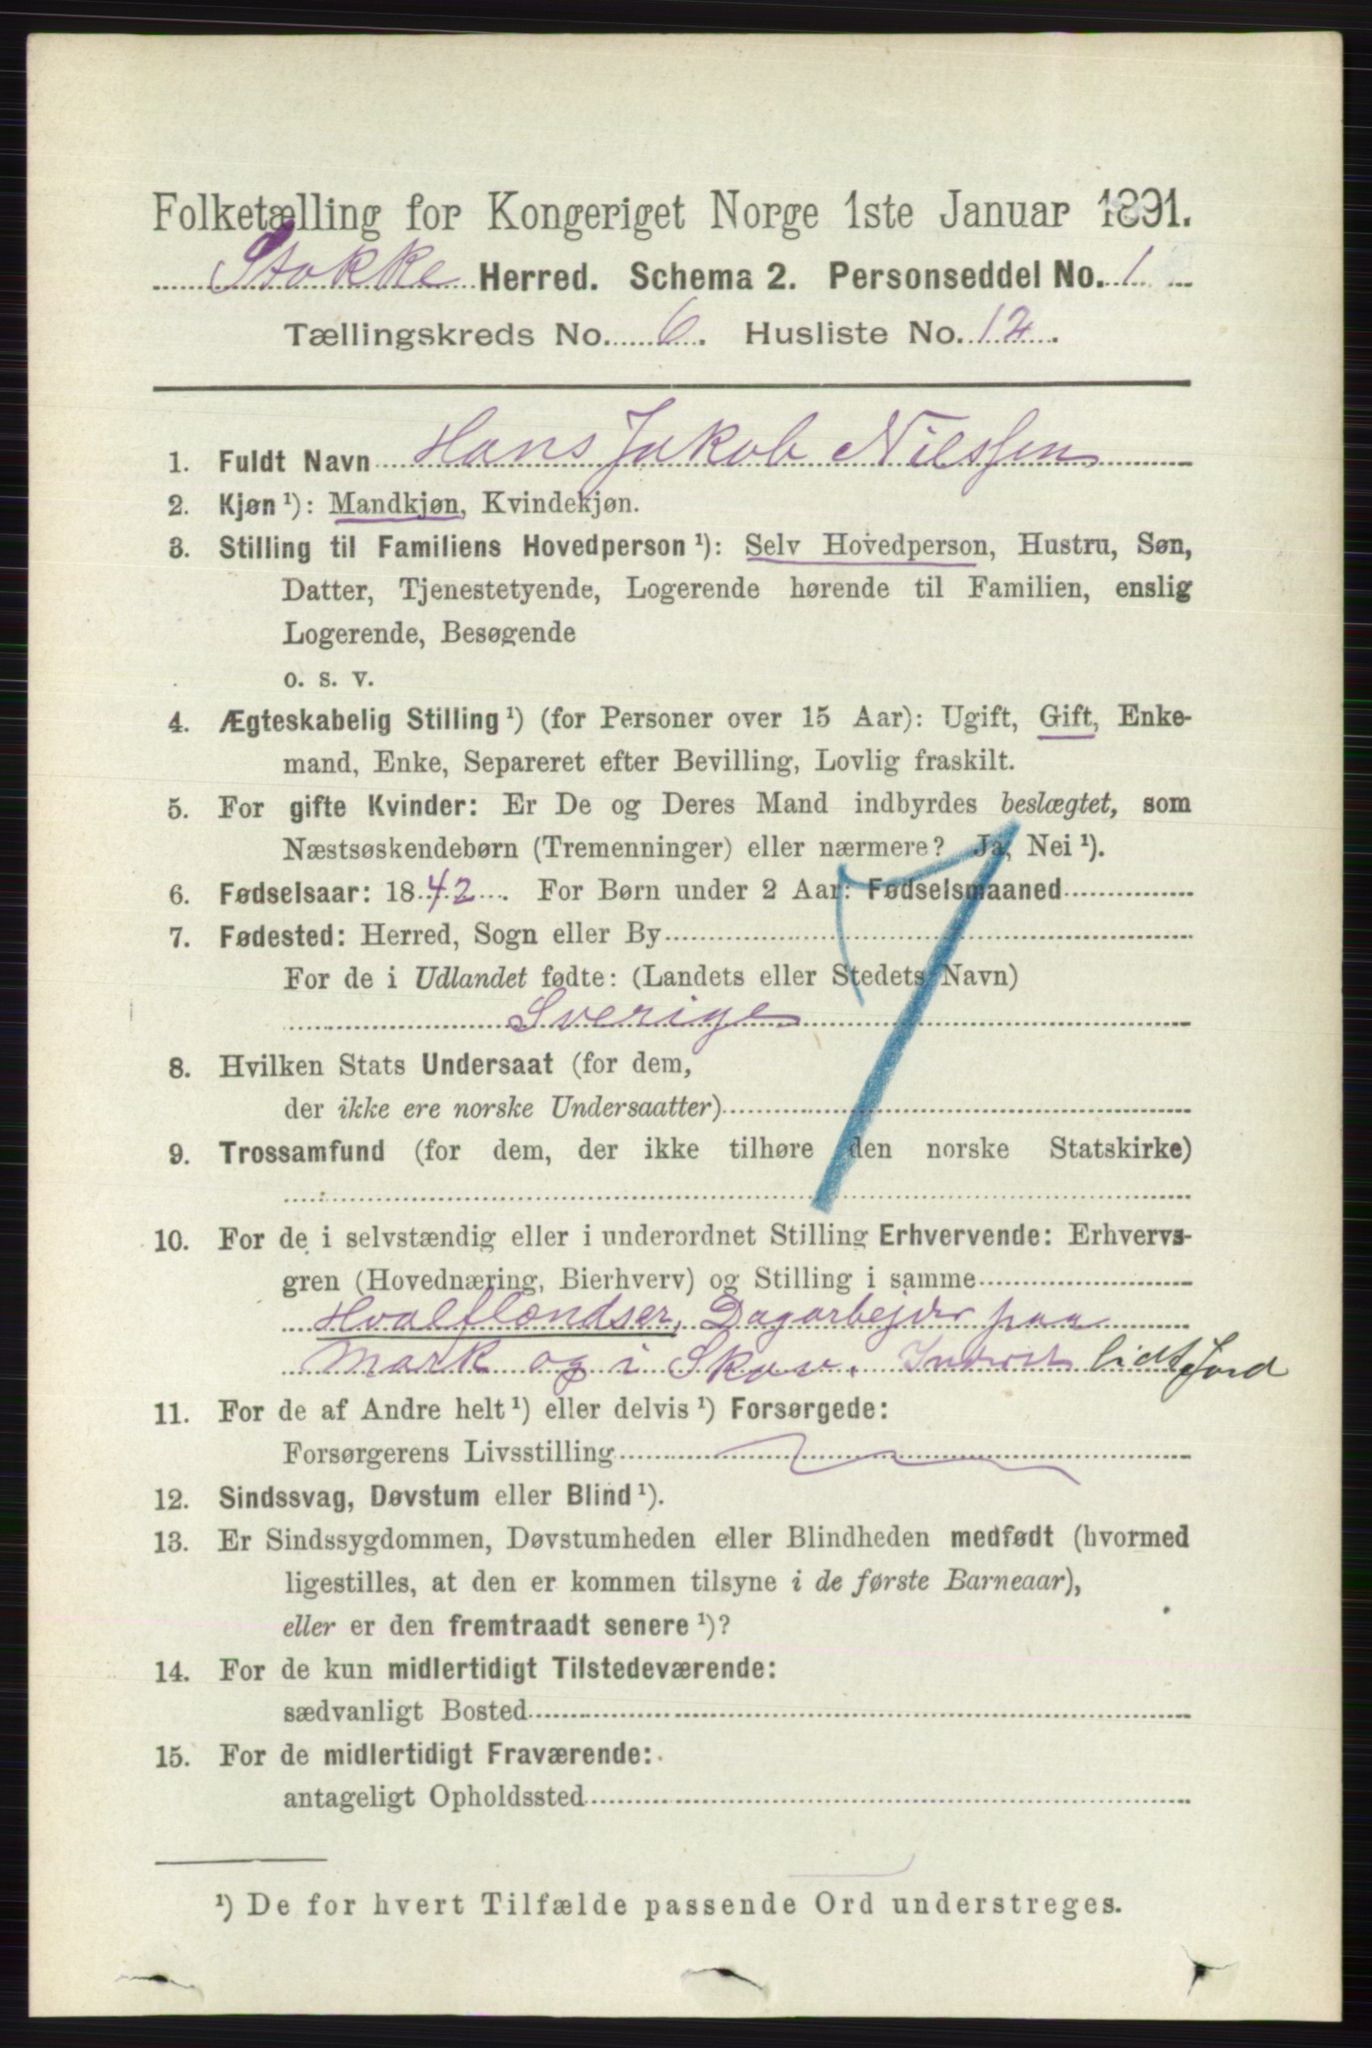 Folketælling for Kongeriget Norge 1ste Januar 1891.
Stokke Herred. Schema 2. Personseddel No. 1
Tællingskreds No. 6. Husliste No. 12.
1. Fuldt Navn Hans Jakob Nilssen
2. Kjøn ¹): Mandkjøn, Kvindekjøn.
3. Stilling til Familiens Hovedperson ¹): Selv Hovedperson, Hustru, Søn,
Datter, Tjenestetyende, Logerende hørende til Familien, enslig
Logerende, Besøgende
o. s. v.
4. Ægteskabelig Stilling ¹) (for Personer over 15 Aar): Ugift, Gift, Enke-
mand, Enke, Separeret efter Bevilling, Lovlig fraskilt.
5. For gifte Kvinder: Er De og Deres Mand indbyrdes beslægtet, som
Næstsøskendebørn (Tremenninger) eller nærmere? Ja, Nei ¹).
6. Fødselsaar: 1842. For Børn under 2 Aar: Fødselsmaaned
7. Fødested: Herred, Sogn eller By
For de i Udlandet fødte: (Landets eller Stedets Navn)
Sverige
8. Hvilken Stats Undersaat (for dem,
der ikke ere norske Undersaatter)
9. Trossamfund (for dem, der ikke tilhøre den norske Statskirke)
10. For de i selvstændig eller i underordnet Stilling Erhvervende: Erhvervs-
gren (Hovednæring, Bierhverv) og Stilling i samme
Hvalflændser, Dagarbejder paa
Mark og i Skov. lidt Jord
11. For de af Andre helt ¹) eller delvis ¹) Forsørgede:
Forsørgerens Livsstilling
12. Sindssvag, Døvstum eller Blind ¹).
13. Er Sindssygdommen, Døvstumheden eller Blindheden medfødt (hvormed
ligestilles, at den er kommen tilsyne i de første Barneaar),
eller er den fremtraadt senere ¹)?
14. For de kun midlertidigt Tilstedeværende:
sædvanligt Bosted
15. For de midlertidigt Fraværende:
antageligt Opholdssted
¹) De for hvert Tilfælde passende Ord understreges.
7